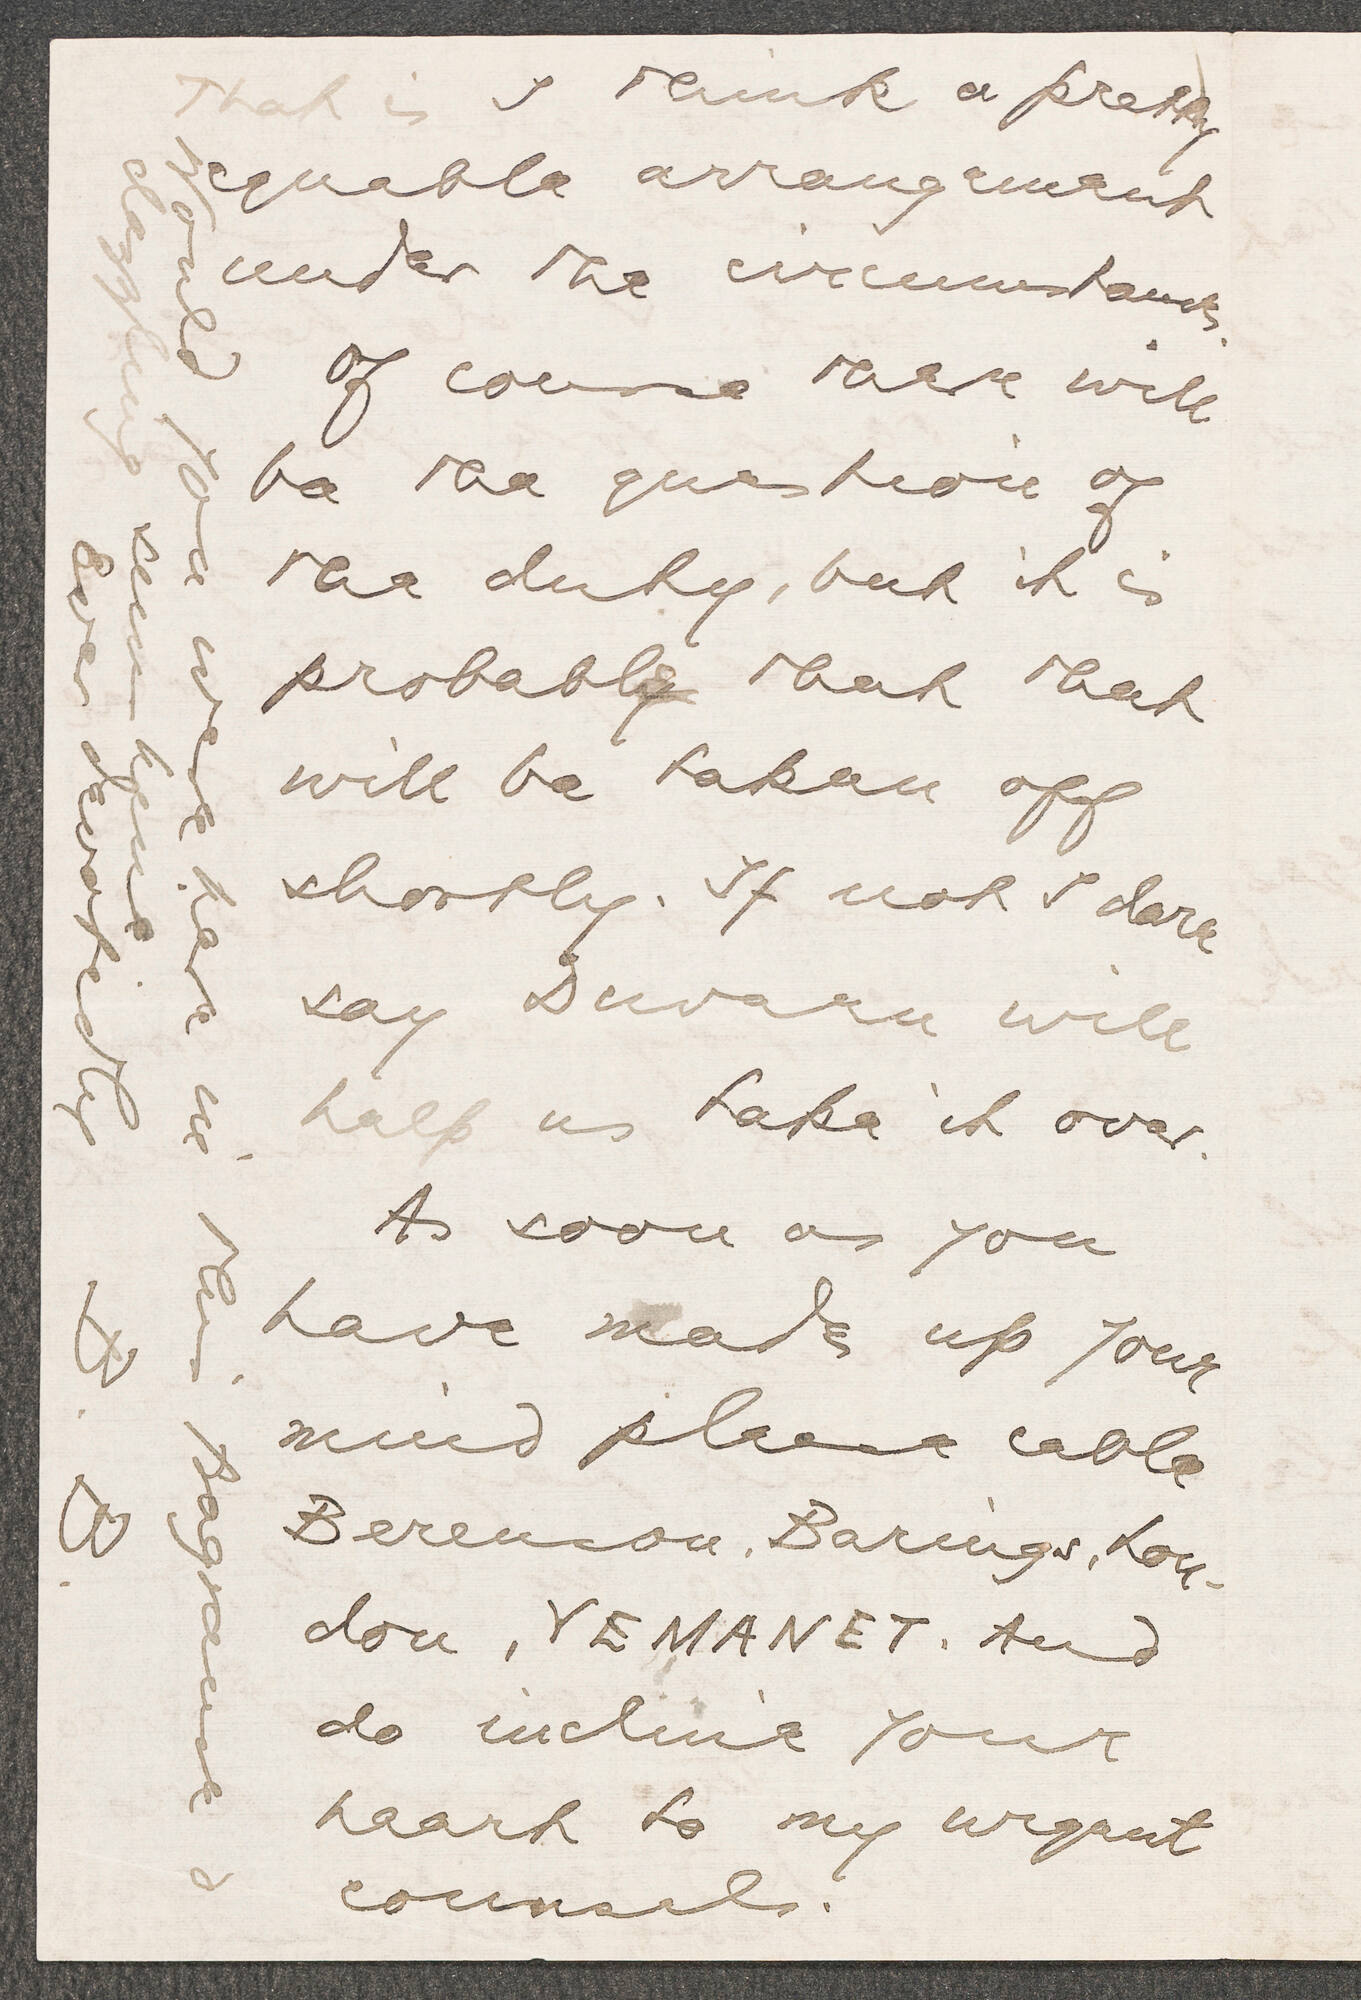 That is I think a pretty
equable arrangement
under the circumstances.
Of course there will
be the question of
the duty, but it is
probably that that
will be taken off
shortly. If not I dare
say Duveen will
help us take it over.
As soon as you
have made up your
mind please cable
Berenson, Barings, Lon-
don, YEMANET. And
do incline your
heart to my urgent
counsels.
Would you were here in this fragrance &
dazzling sunshine
Ever devotedly
B. B.